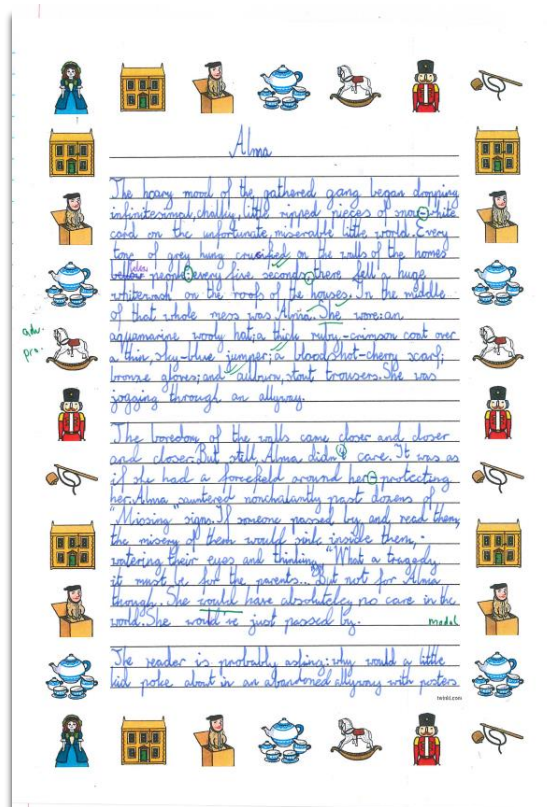 Alma
The hoary mood of the gathered gang began dropping
infinitesimal, chalky, little ripped pieces of snow-white
card on the unfortunate, miserable little world. Every
tone of grey hung crucified on the walls of the homes
below people: every five seconds, there fell a huge
whitewash on the roofs of the houses. In the middle
of that whole mess was Alma. She wore: an
adv.
aquamarine wooly hat; a thick ruby-crimson coat over
pro.
a thin, sky-blue jumper; a blood shot-cherry scarf;
bronze gloves; and auburn, stout trousers. She was
jogging through an allyway.
The boredom of the walls came closer and closer
and closer. But still, Alma didn't care. It was as
if she had a forcefield around her - protecting
her. Alma sauntered nonchalantly past dozens of
"Missing" signs. If someone passed by, and read them,
the misery of them would sink inside them,
watering their eyes and thinking, "What a tragedy
it must be for the parents..." But not for Alma
though. She would have absolutely no care in the
world. She would've just passed by.
modal
The reader is probably asking: why would a little
kid poke about in an abandoned allyway with posters
twinkl.com